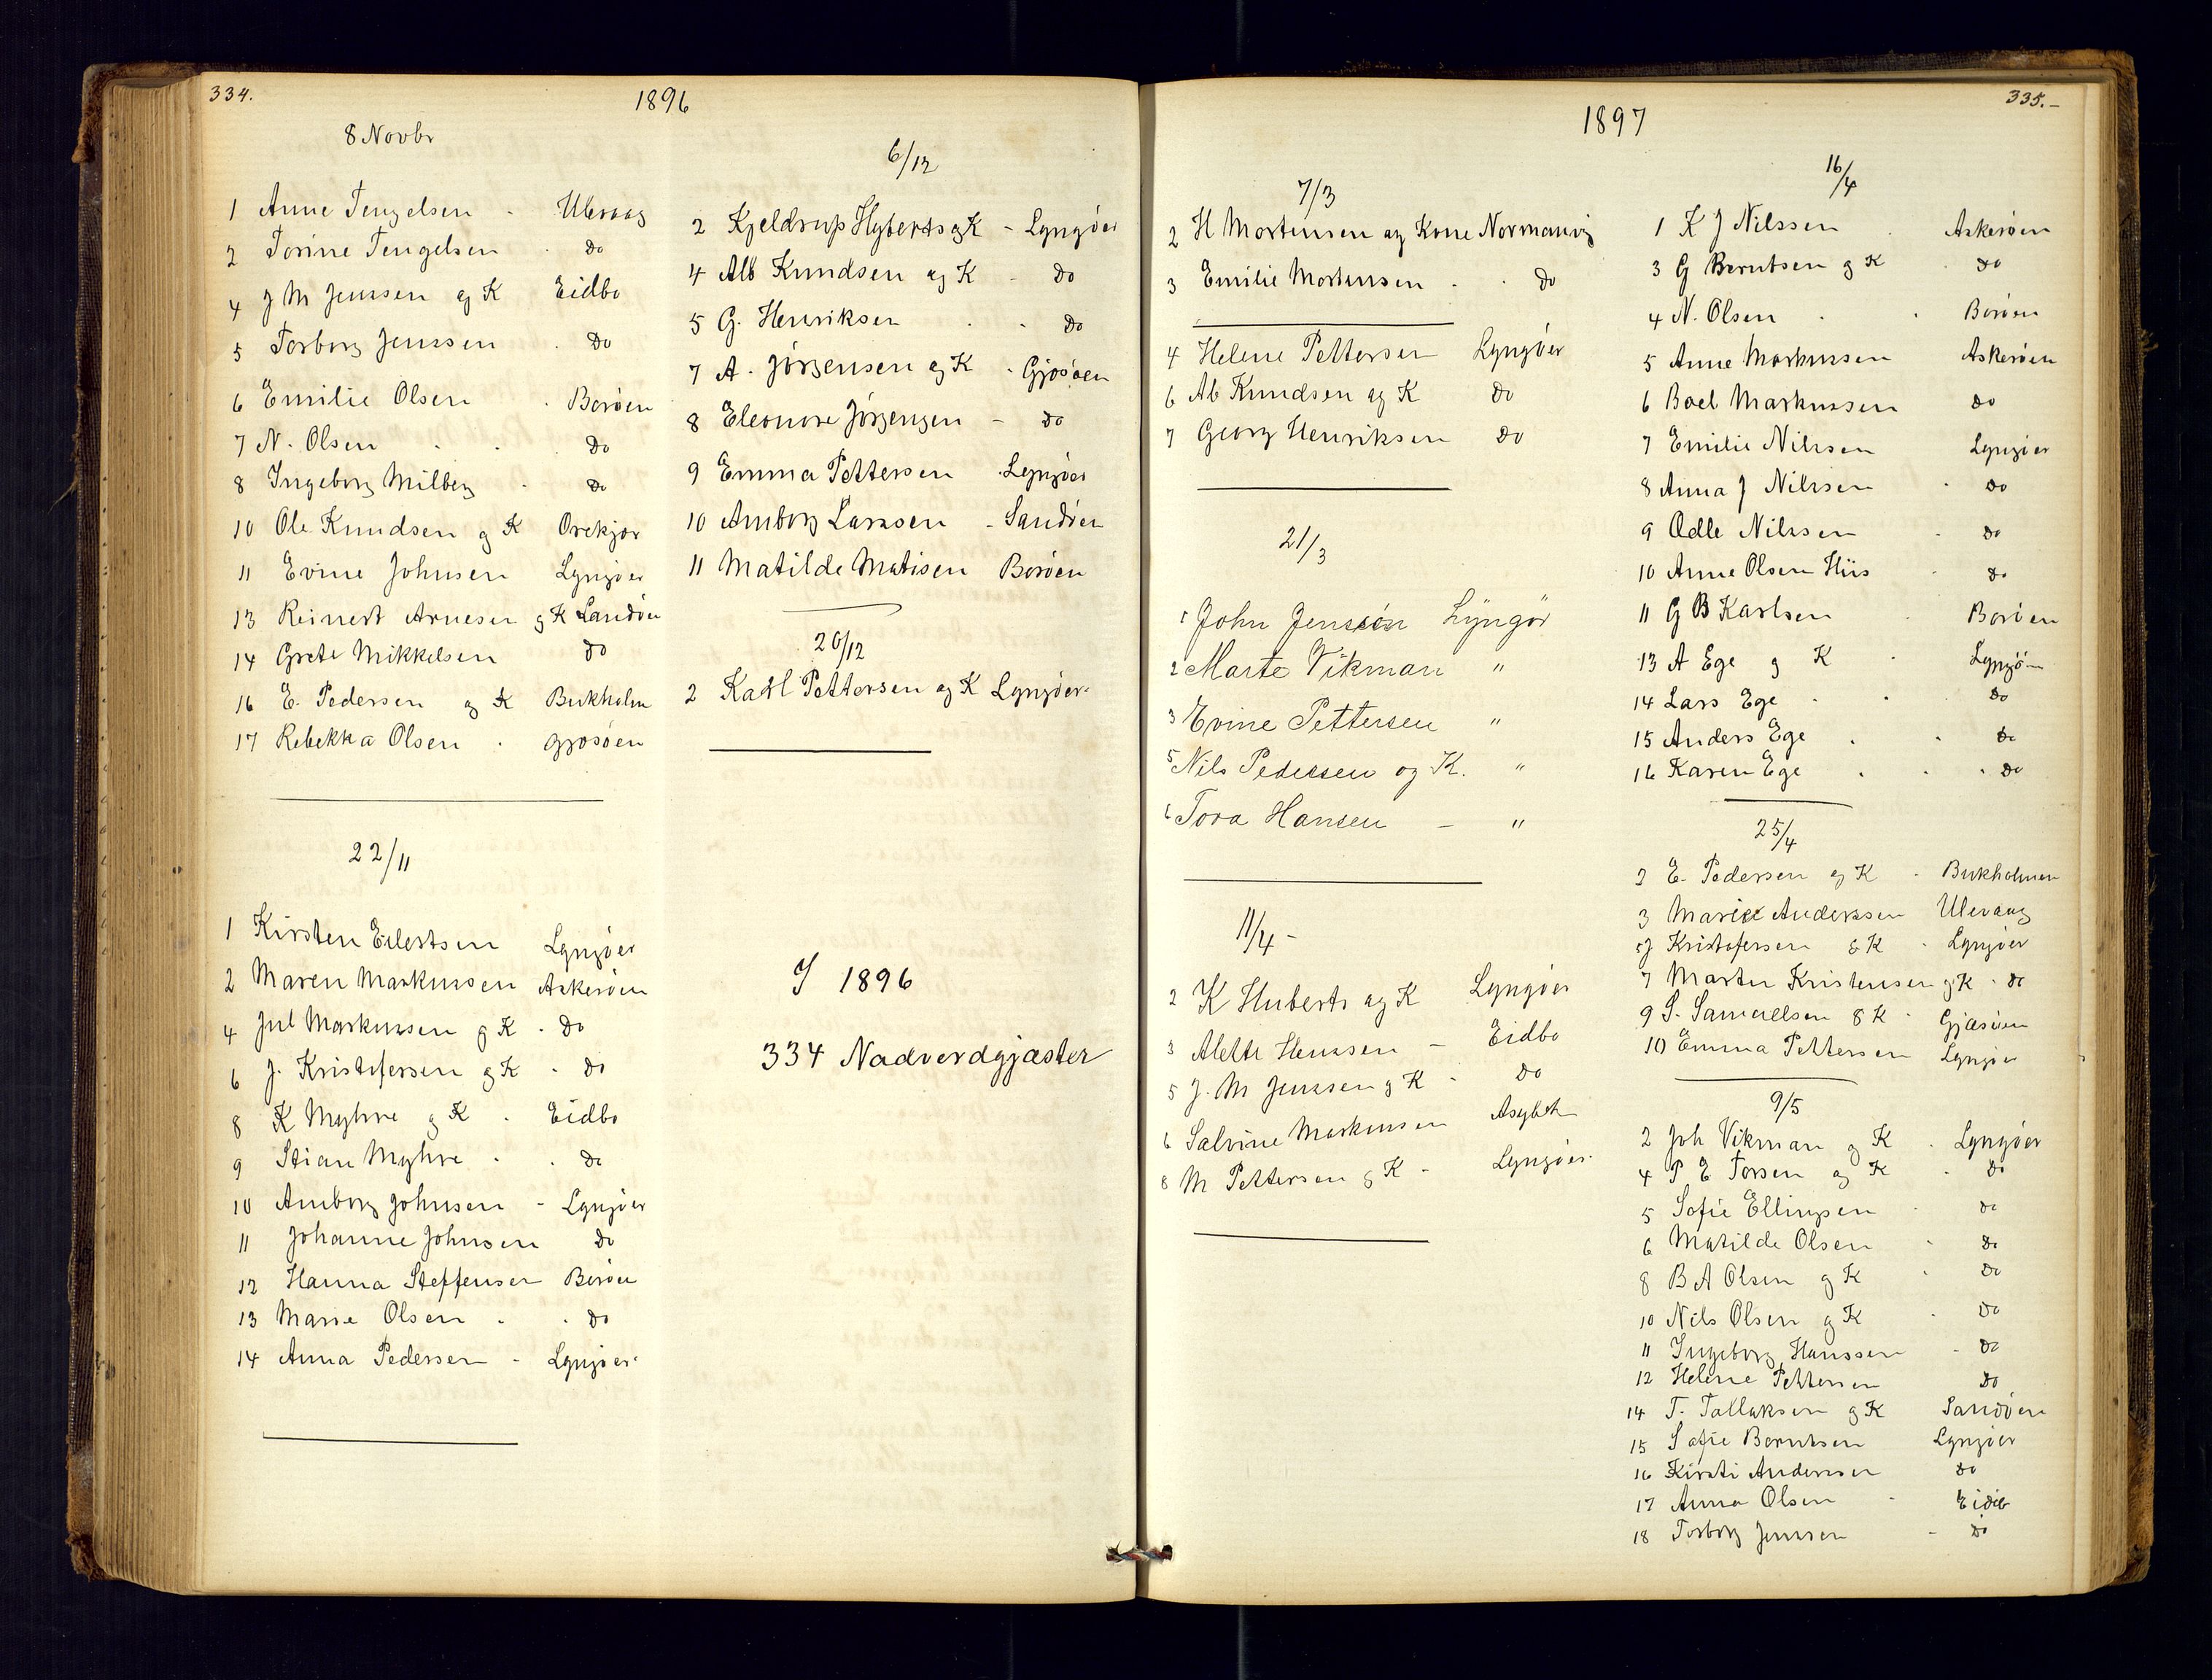 334.
1896
8 Novbr
1 Anne Tengelsen - Ulevaag
2 Torine Tengelsen - Do
4 J M Jenssen og K Eidbo
5 Torborg Jenssen - Do
6 Emilie Olsen - Borøen
7 N. Olsen - - Do
8 Ingeborg Milberg - Do
10 Ole Knudsen og K Orekjær
11 Evine Johnsen Lyngøer
13 Reinert Arnesen og K Sandøen
14 Grete Mikkelsen Do
16 E. Pedersen og K Bukholm
17 Rebekka Olsen - Gjøsøen
22/11
1 Kirsten Eilertsen Lyngøer
2 Maren Markussen Askerøen
4 Jul Markussen og K - Do
6 J. Kristofersen og K - Do
8 K Myhre og K - Eidbo
9 Stian Myhre - - Do
10 Amborg Johnsen - Lyngøer
11 Johanne Johnsen Do
12 Hanna Steffensen Borøen
13 Marie Olsen - - Do
14 Anna Pedersen - Lyngøer
6/12
2 Kjeldrup Hyberts og K - Lyngøer
4 Alb Knudsen og K - Do
5 G. Henriksen - - Do
7 A. Jørgensen og K - Gjøsøen
8 Eleonore Jørgensen - Do
9 Emma Pettersen - Lyngøer
10 Amborg Larssen - Sandøen
11 Matilde Matisen Borøen
20/12
2 Karl Pettersen og K Lyngøer
I 1896
334 Nadverdgjæster
335.-
1897
7/3
2 H Mortensen og Kone Normanvig
3 Emilie Mortensen - - Do
4 Helene Pettersen Lyngøer
6 Ab Knudsen og K Do
7 Georg Henriksen Do
21/3
1 John Jenssen Lyngør
2 Marte Vikman "
3 Evine Pettersen "
5 Nils Pedersen og K. "
6 Tora Hansen - "
11/4 -
2 K Huberts og K Lyngøer
3 Alette Henssen - Eidbo
5 J. M Jenssen og K - Do
6 Salvine Markussen
8 M Pettersen og K - Lyngøer
16/4
1 K J Nilssen - Askerøen
3 G Berntsen og K - Do
4 N. Olsen - - Borøen
5 Anne Markussen Askerøen
6 Boel Markussen Do
7 Emilie Nilssen Lyngøer
8 Anna J Nilssen - Do
9 Odle Nilssen - Do
10 Anne Olsen Hiis - Do
11 G B Karlsen - Borøen
13 A Ege og K - Lyngøer
14 Lars Ege - - Do
15 Anders Ege - - Do
16 Karen Ege - - - Do
25/4
2 E. Pedersen og K - Bukholmen
3 Marie Anderssen Ulevaag
5 J Kristofersen & K - Lyngøer
7 Marten Kristensen og K - do
9 S. Samuelsen & K - Gjæsøen
10 Emma Pettersen Lyngøer
9/5
2 Joh Vikman og K - Lyngøer
4 P E Torsen og K - Do
5 Sofie Ellingsen - Do
6 Matilde Olsen - Do
8 B A Olsen og K - Do
10 Nils Olsen og K - Do
11 Ingeborg Hanssen - Do
12 Helene Pettersen Do
14 T. Tallaksen og K Sandøen
15 Sofie Berntsen Lyngøer
16 Kirsti Andersen Do
17 Anna Olsen - Eidb
18 Torborg Jenssen - Do